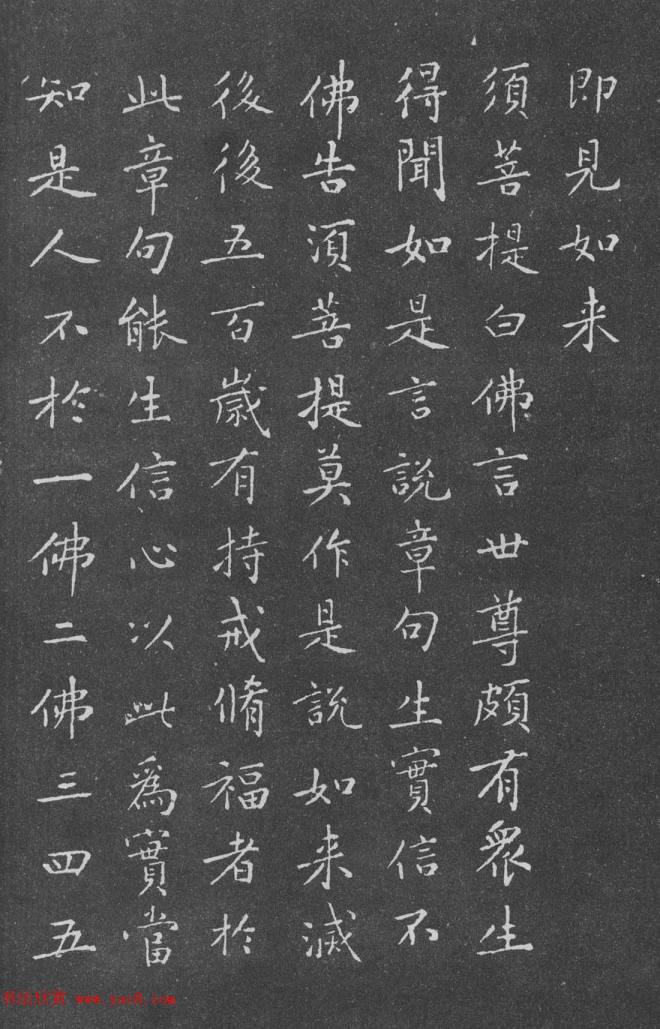 即見如来
須菩提白佛言世尊頗有衆生
得聞如是言說章句生實信不
佛告須菩提莫作是説如来滅
後後五百歲有持戒脩福者於
此章句能生信心以此為實當
知是人不於一佛二佛三四五
书法欣赏 www.yac8.com